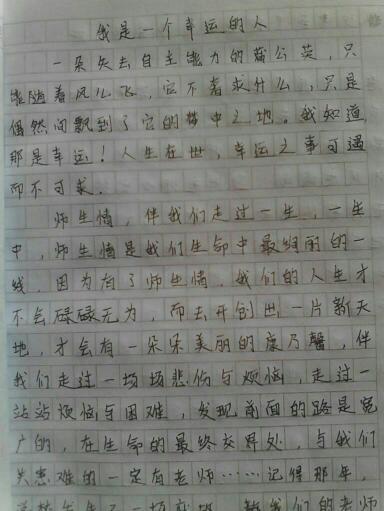 我是一个幸运的人
一朵失去自主能力的蒲公英，只
能随着风儿飞，它不奢求什么，只是
偶然间飘到了它的梦中之地。我知道，
那是幸运！人生在世，幸运之事可遇
而不可求。
师生情，伴我们走过一生，一生
中，师生情是我们生命中最绚丽的一
线。因为有了师生情，我们的人生才
不会碌碌无为，而去开创出一片新天
地，才会有一朵朵美丽的康乃馨，伴
我们走过一场场悲伤与烦恼，走过一
站站烦恼与困难，发现前面的路是宽
广的，在生命的最终交界处，与我们
共患难的一定有老师……记得那年，
我们的老师